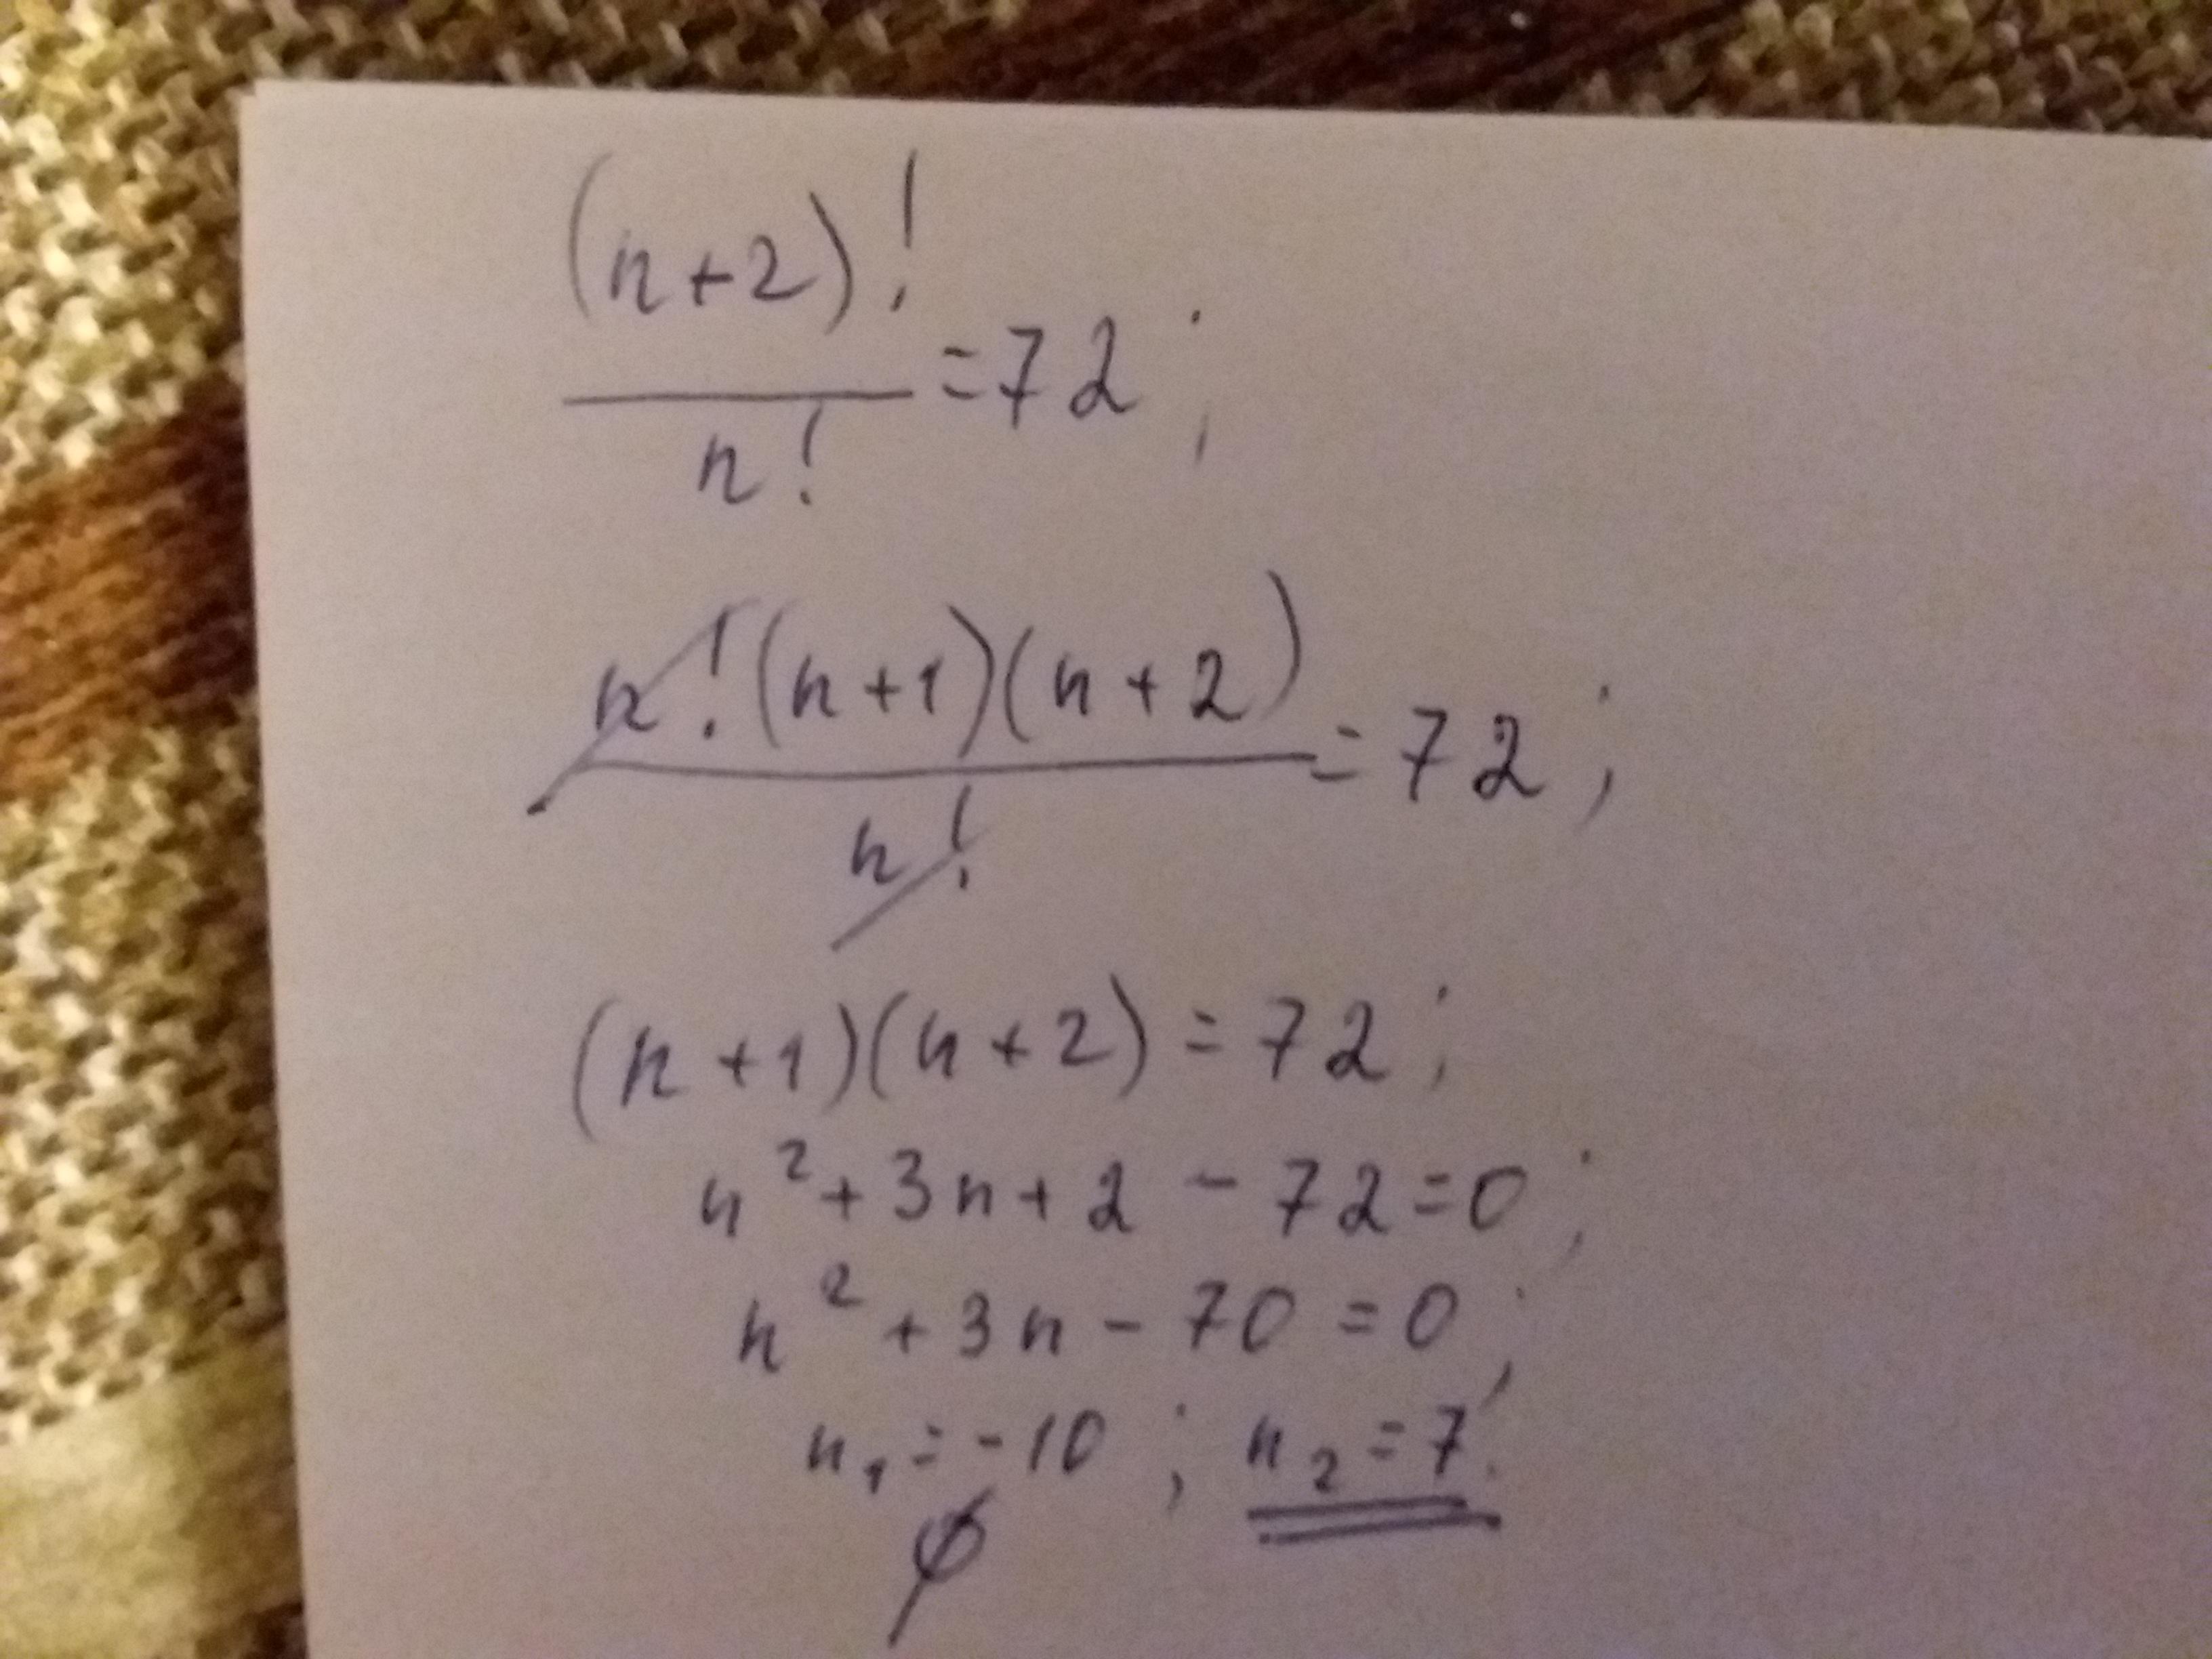 (n+2)!
/ n! = 72;
n!(n+1)(n+2)
/ n! = 72;
(n+1)(n+2) = 72;
n² + 3n + 2 - 72 = 0;
n² + 3n - 70 = 0;
n₁ = -10; n₂ = 7.
∅